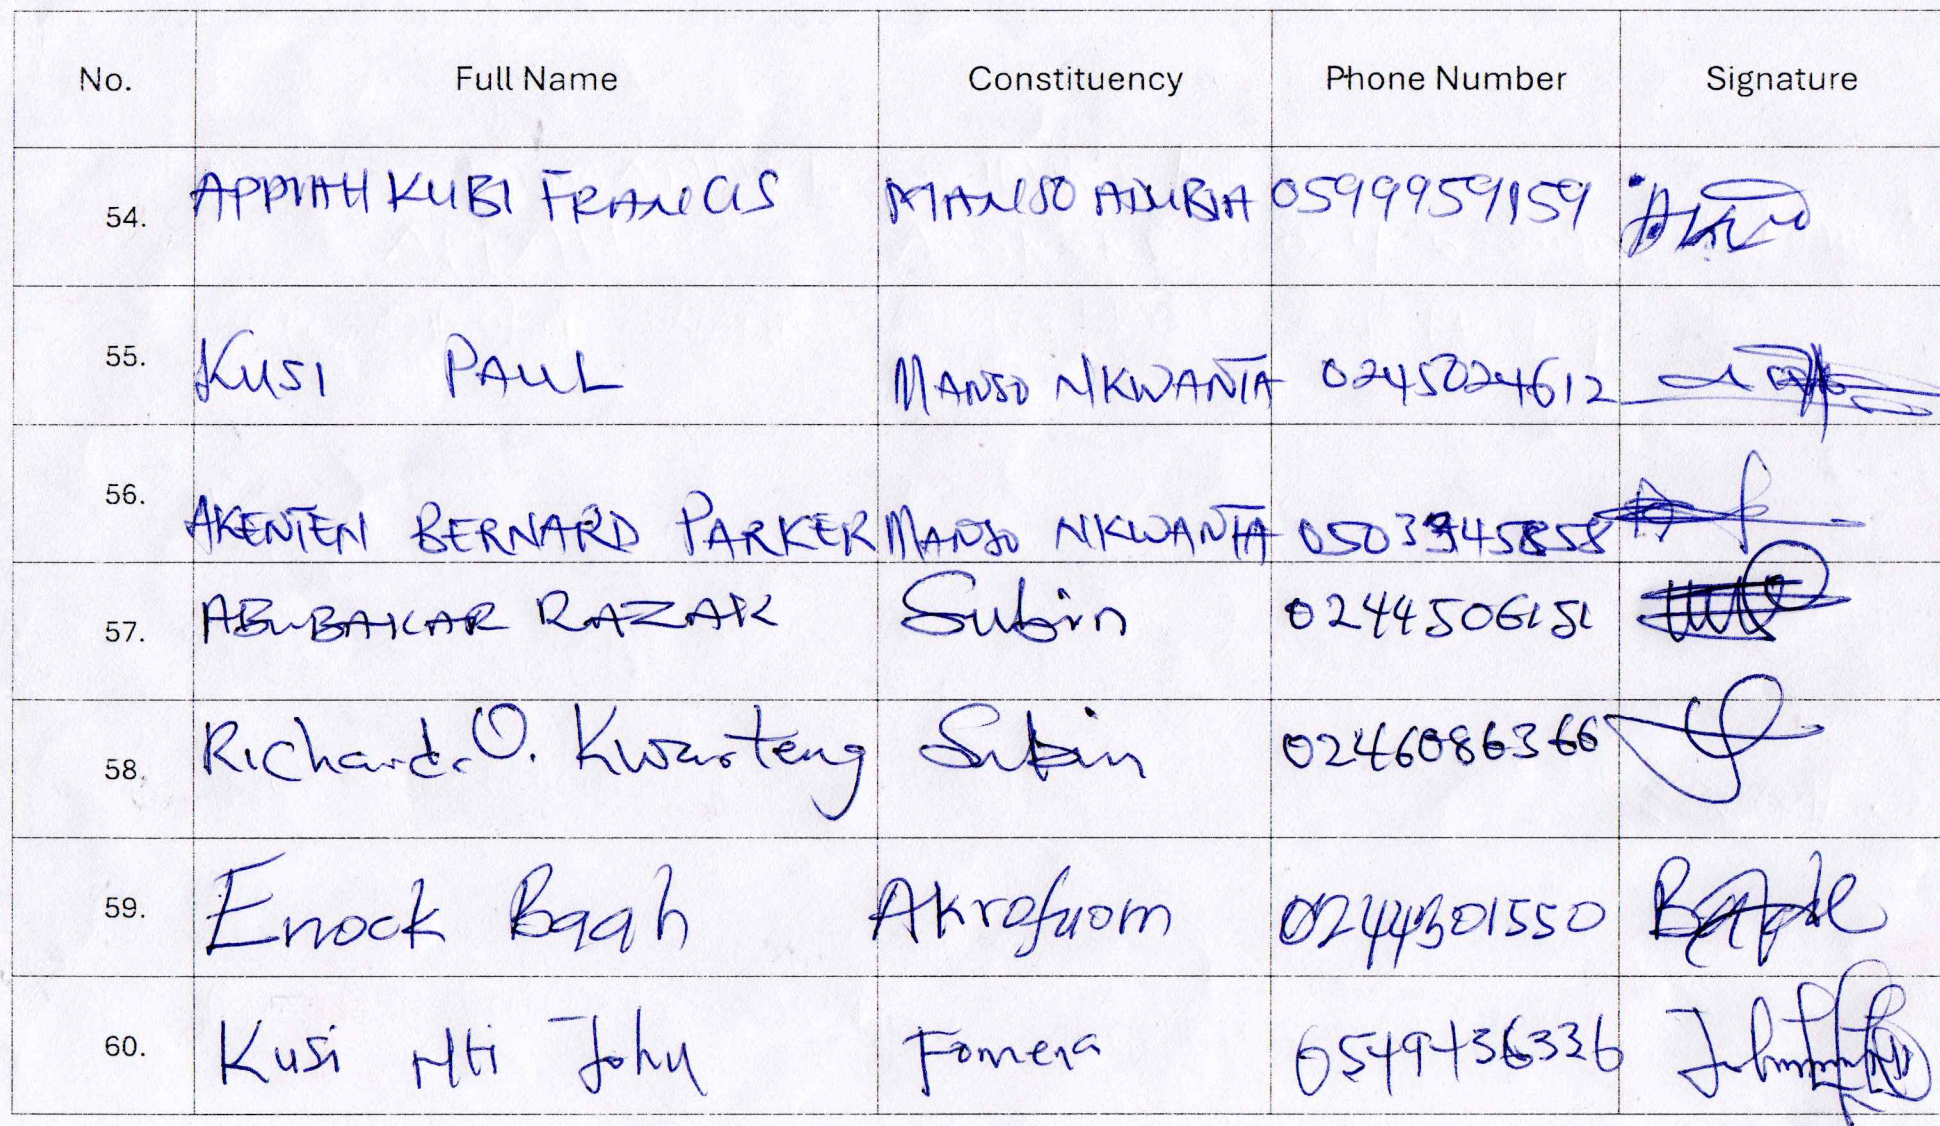 No. Full Name Constituency Phone Number Signature
54. APPIAH KUBI FRANCIS MANSO ADUBIA 0599959159
55. KUSI PAUL MANSO NKWANTA 0245024612
56. AKENTEN BERNARD PARKER MANSO NKWANTA
57. ABUBAKAR RAZAK Subin 0244506151
58. Richard. O. Kwarteng Subin 0246086366
59. Enock Baah Akrofuom 0244301550
60. Kusi Nti John Fomena 0549436336